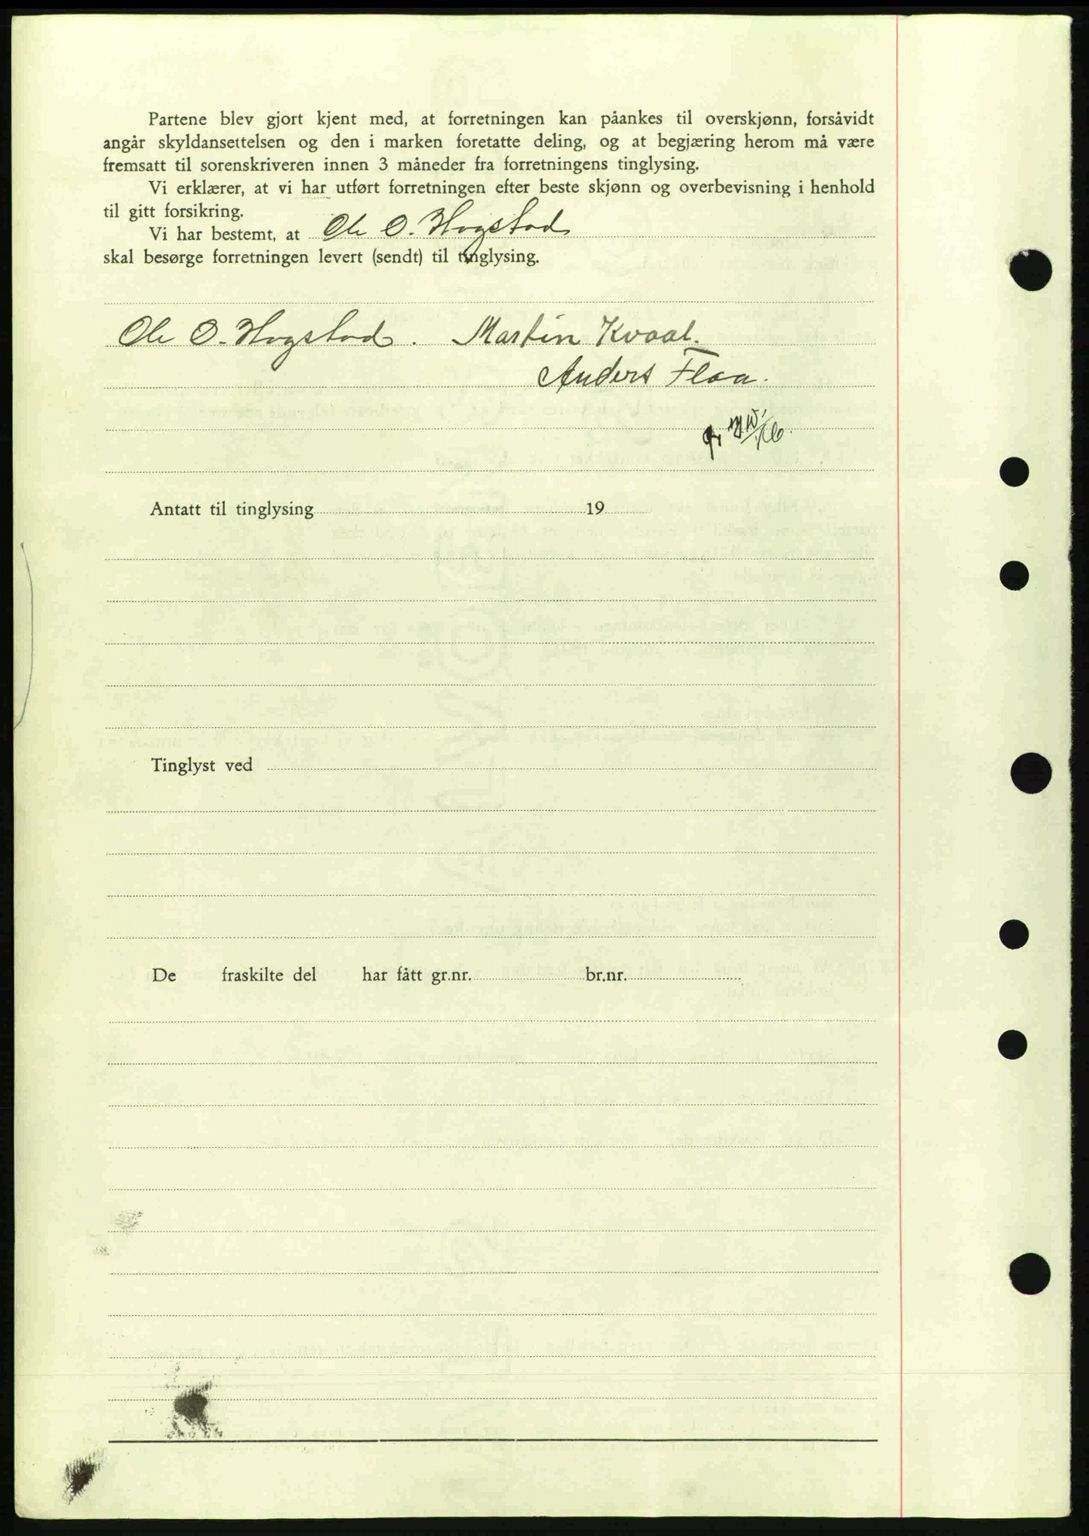 Partene blev gjort kjent med, at forretningen kan påankes til overskjønn, forsåvidt
angår skyldansettelsen og den i marken foretatte deling, og at begjæring herom må være
fremsatt til sorenskriveren innen 3 måneder fra forretningens tinglysing.
Vi erklærer, at vi har utført forretningen efter beste skjønn og overbevisning i henhold
til gitt forsikring.
Vi har bestemt, at Ole O. Hogstad
skal besørge forretningen levert (sendt) til tinglysing.
Ole O. Hogstad. Martin Kvaal.
Anders Flaa.
Antatt til tinglysing 19
Tinglyst ved
De fraskilte del har fått gr.nr. br.nr.